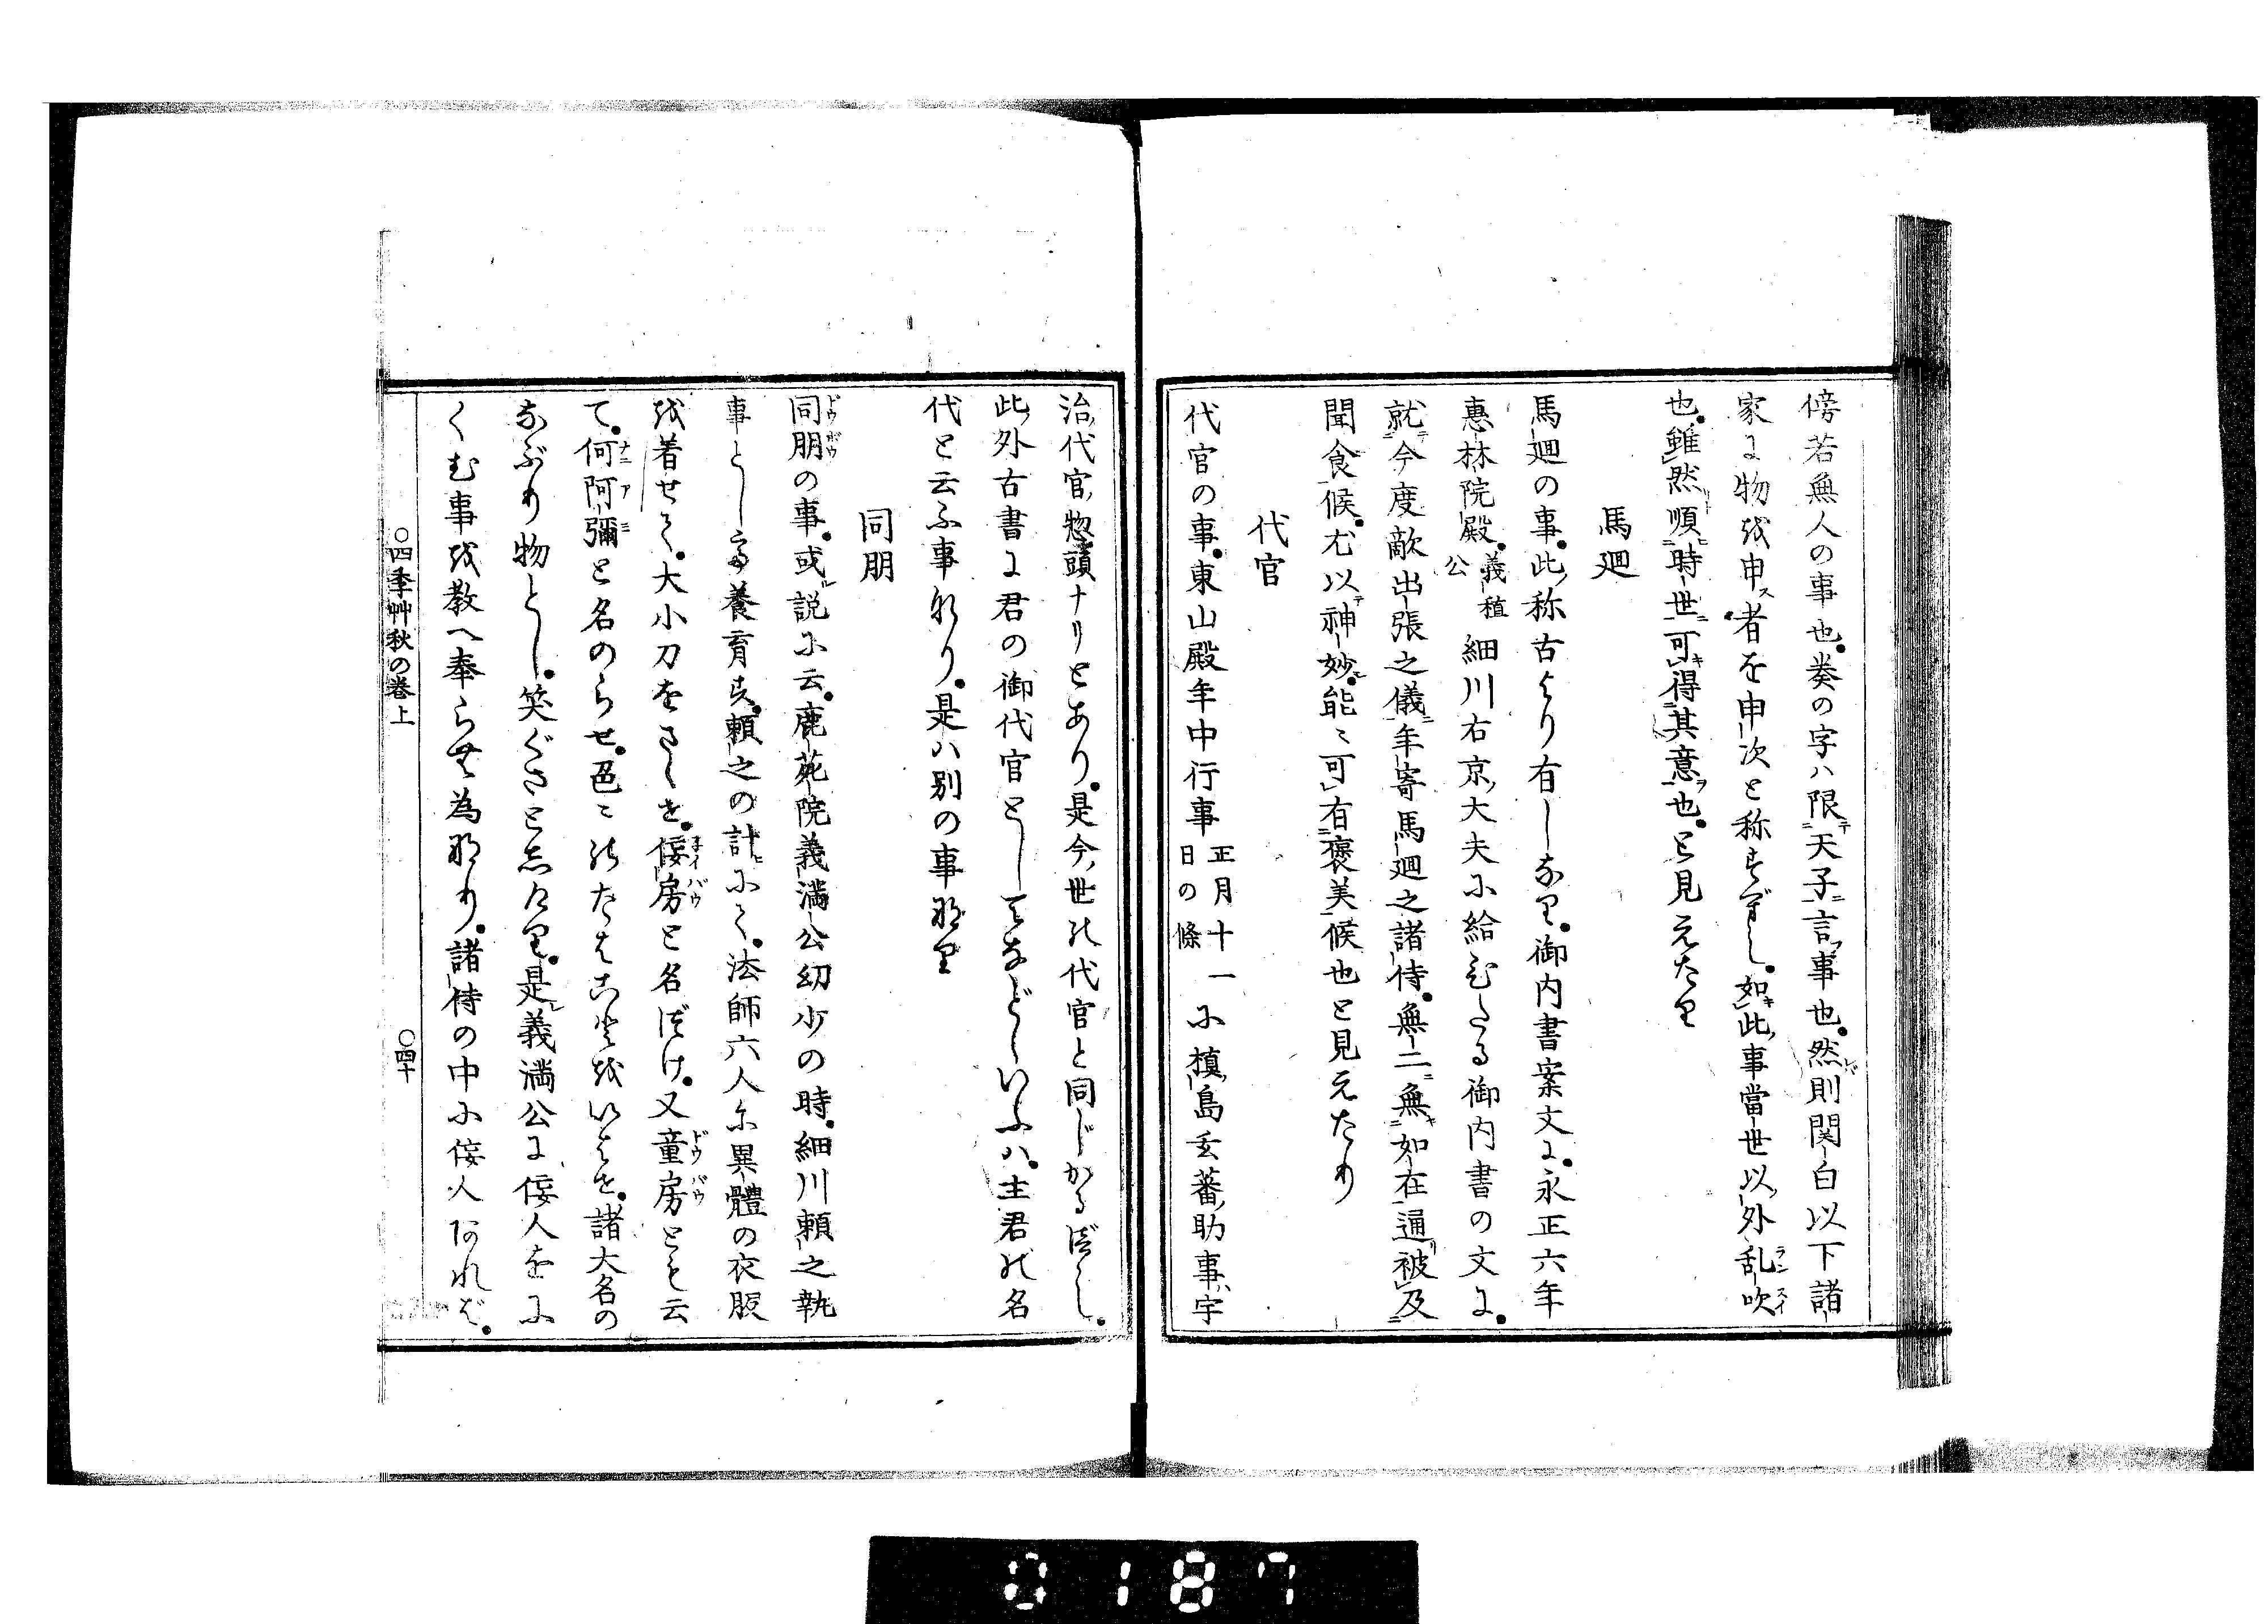 傍若無人の事也。奏の字ハ限テ天子ニ言フ事也。然レバ則関白以下諸
家に物を申ス者を申次と称すべし。如キ此ノ事當世以ノ外乱吹
也。雖然順ニ時世ニ可キ得其意ヲ也。と見えたり
馬廻
馬廻の事。此ノ称古より有しなり。御内書案文に。永正六年
惠林院殿。義稙公細川右京ノ大夫に給ひたる御内書の文に。
就テ今度敵出張之儀ニ年寄馬廻之諸侍。無二ニ無キ如在通リ被及
聞食候。尤以テ神妙ニ。能ミ可有褒美候也と見えたり
代官
代官の事。東山殿年中行事正月十一日の條に槙ノ島玄蕃ノ助事ハ宇
治ノ代官ノ惣頭ナリとあり。是今ノ世の代官と同じかるべし。
此ノ外古書に君の御代官としてなどゝいふハ。主君の名
代と云ふ事なり。是ハ別の事なり
同朋
同朋の事。或ル説に云。鹿苑院義満公幼少の時。細川頼之執
事として養育す。頼之の計ヒにて。法師六人に異體の衣服
を着せて。大小刀をさゝせ。佞房と名づけ。又童房とも云
て。何阿彌と名のらせ。色ミのたはことをいはせ。諸大名の
なぶり物とし。笑ぐさと志たり。是レ義満公に佞人をに
くむ事を教へ奉らむ為なり。諸侍の中に佞人あれば。
○四季艸秋の巻上
○四十
0187